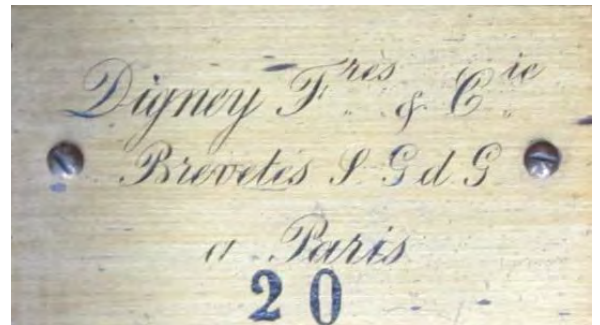 Digney Frès & Cie
Brevetés S G d G
a Paris
20